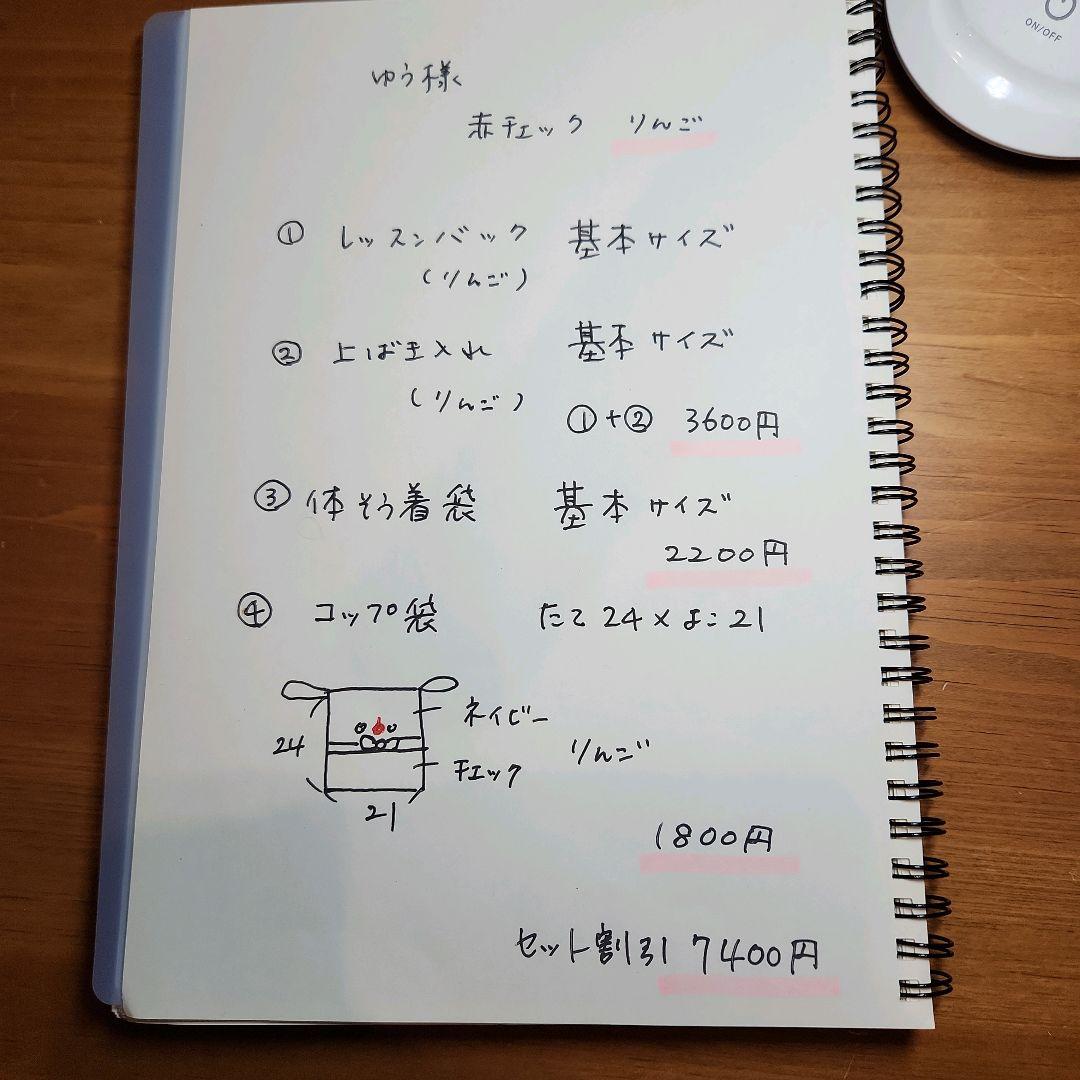 ゆう様
赤チェック りんご
① レッスンバック 基本サイズ
(りんご)
② 上ばき入れ 基本サイズ
(りんご)
①+② 3600円
③ 体そう着袋 基本サイズ
2200円
④ コップ袋 たて24×よこ21
ネイビー
24 りんご
チェック
21
1800円
セット割引 7400円
ON/OFF